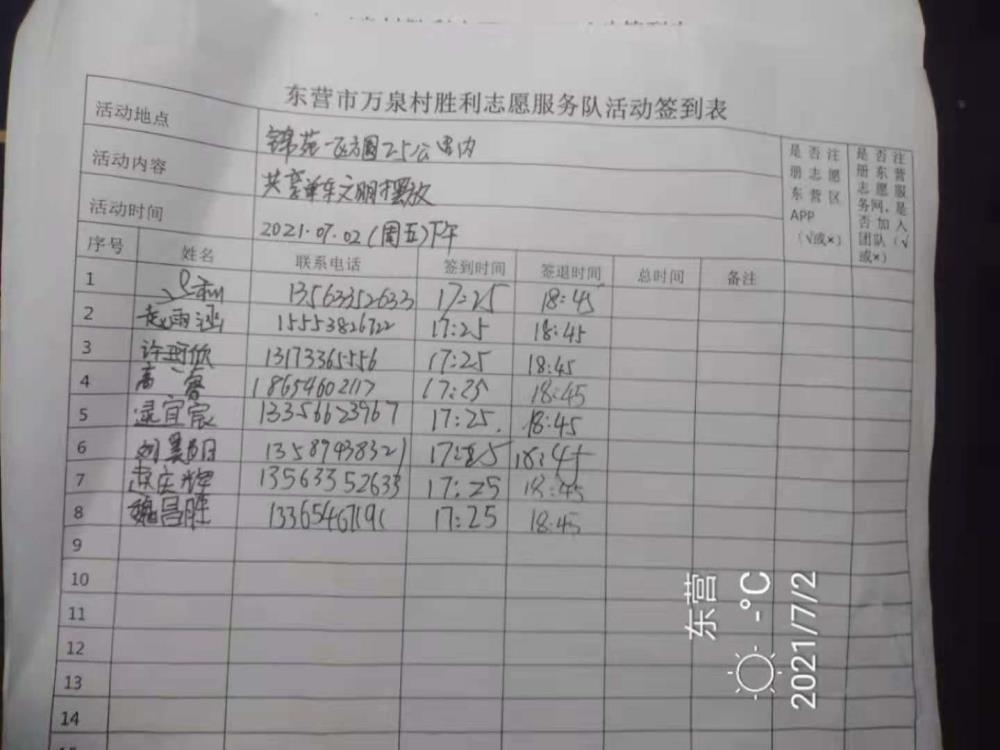 东营市万泉村胜利志愿服务队活动签到表
活动地点 锦苑一区方圆2.5公里内
活动内容 共享单车文明摆放
活动时间 2021.07.02(周五)下午
是否注册志愿东营区APP(√或×)
是否注册东营志愿服务网,是否加入团队(√或×)
序号 姓名 联系电话 签到时间 签退时间 总时间 备注
1 13563352633 17:25 18:45
2 赵雨涵 15553826722 17:25 18:45
3 许珂欣 13173365556 17:25 18:45
4 高睿 18654602117 17:25 18:45
5 逯宜宸 13356623967 17:25 18:45
6 13589438321 17:25 18:45
7 赵庆辉 13563352633 17:25 18:45
8 魏昌胜 17:25 18:45
9
10
11
12
13
14
东营
-°C
2021/7/2